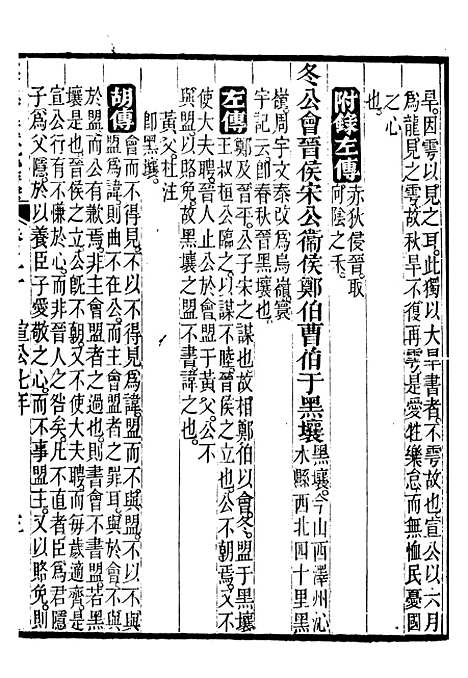 旱。因雩以見之耳。此獨以大旱書者。不雩故也。宣公以六月
爲龍見之雩。故秋旱不復再雩。是愛牲樂怠而無恤民憂國
之心
也。
附錄左傳 赤狄侵晉。取
向陰之禾。
冬公會晉侯宋公衞侯鄭伯曹伯于黑壤 黑壤。今山西澤州沁
水縣西北四十里黑
嶺。周宇文泰改爲烏嶺。寰
宇記云。卽春秋晉黑壤也。
左傳 鄭及晉平。公子宋之謀也。故相鄭伯以會。冬。盟于黑壤
王叔桓公臨之。以謀不睦。晉侯之立也。公不朝焉。又不
使大夫聘。晉人止公于會。盟于黃父。公不
與盟。以賂免。故黑壤之盟不書。諱之也。
黃父。杜注
卽黑壤。
胡傳 會而不得見。不以不得見爲諱。盟而不與盟。不以不與
盟爲諱。則曲不在公。而主會盟者之罪耳。與於會。不與
於盟。而公有歉焉。非主會盟者之過也。則書會不書盟。若黑
壤是也。晉侯之立。公旣不朝。又不使大夫聘。而每歲適齊。是
宣公行有不慊於心。而非晉人之咎矣。凡不直者。臣爲君隱
子爲父隱。於以養臣子愛敬之心。而不事盟主。又以賂免。則
宣公七年